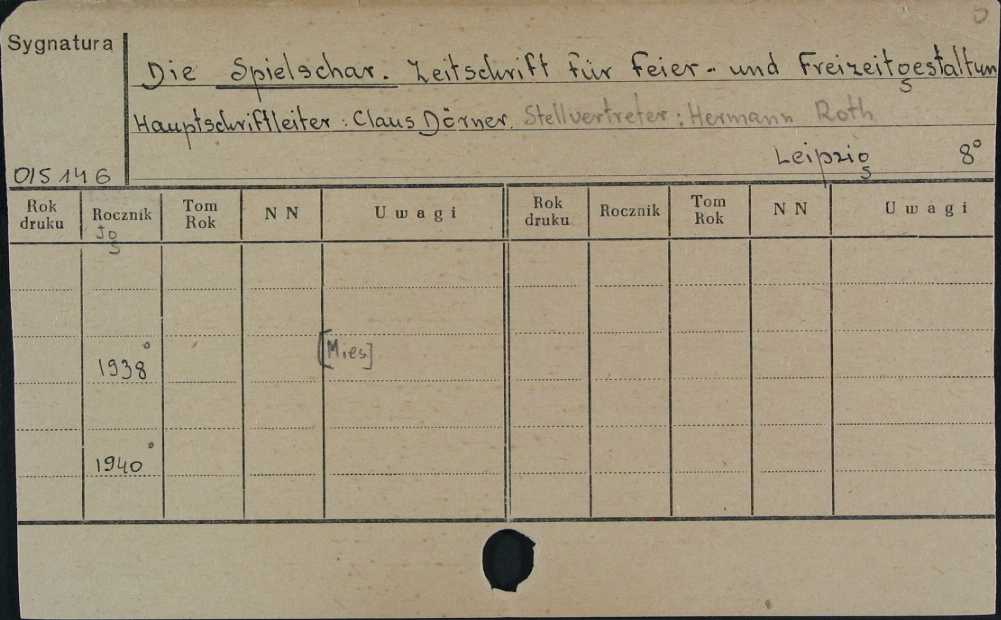 Sygnatura
Die Spielschar. Zeitschrift für Feier- und Freizeitgestaltun
Hauptschriftleiter: Claus Dörner. Stellvertreter: Hermann Roth
Leipzig 8°
015146
Rok druku Rocznik Tom Rok NN Uwagi Rok druku Rocznik Tom Rok NN Uwagi
Jg
1938° [Mies]
1940°